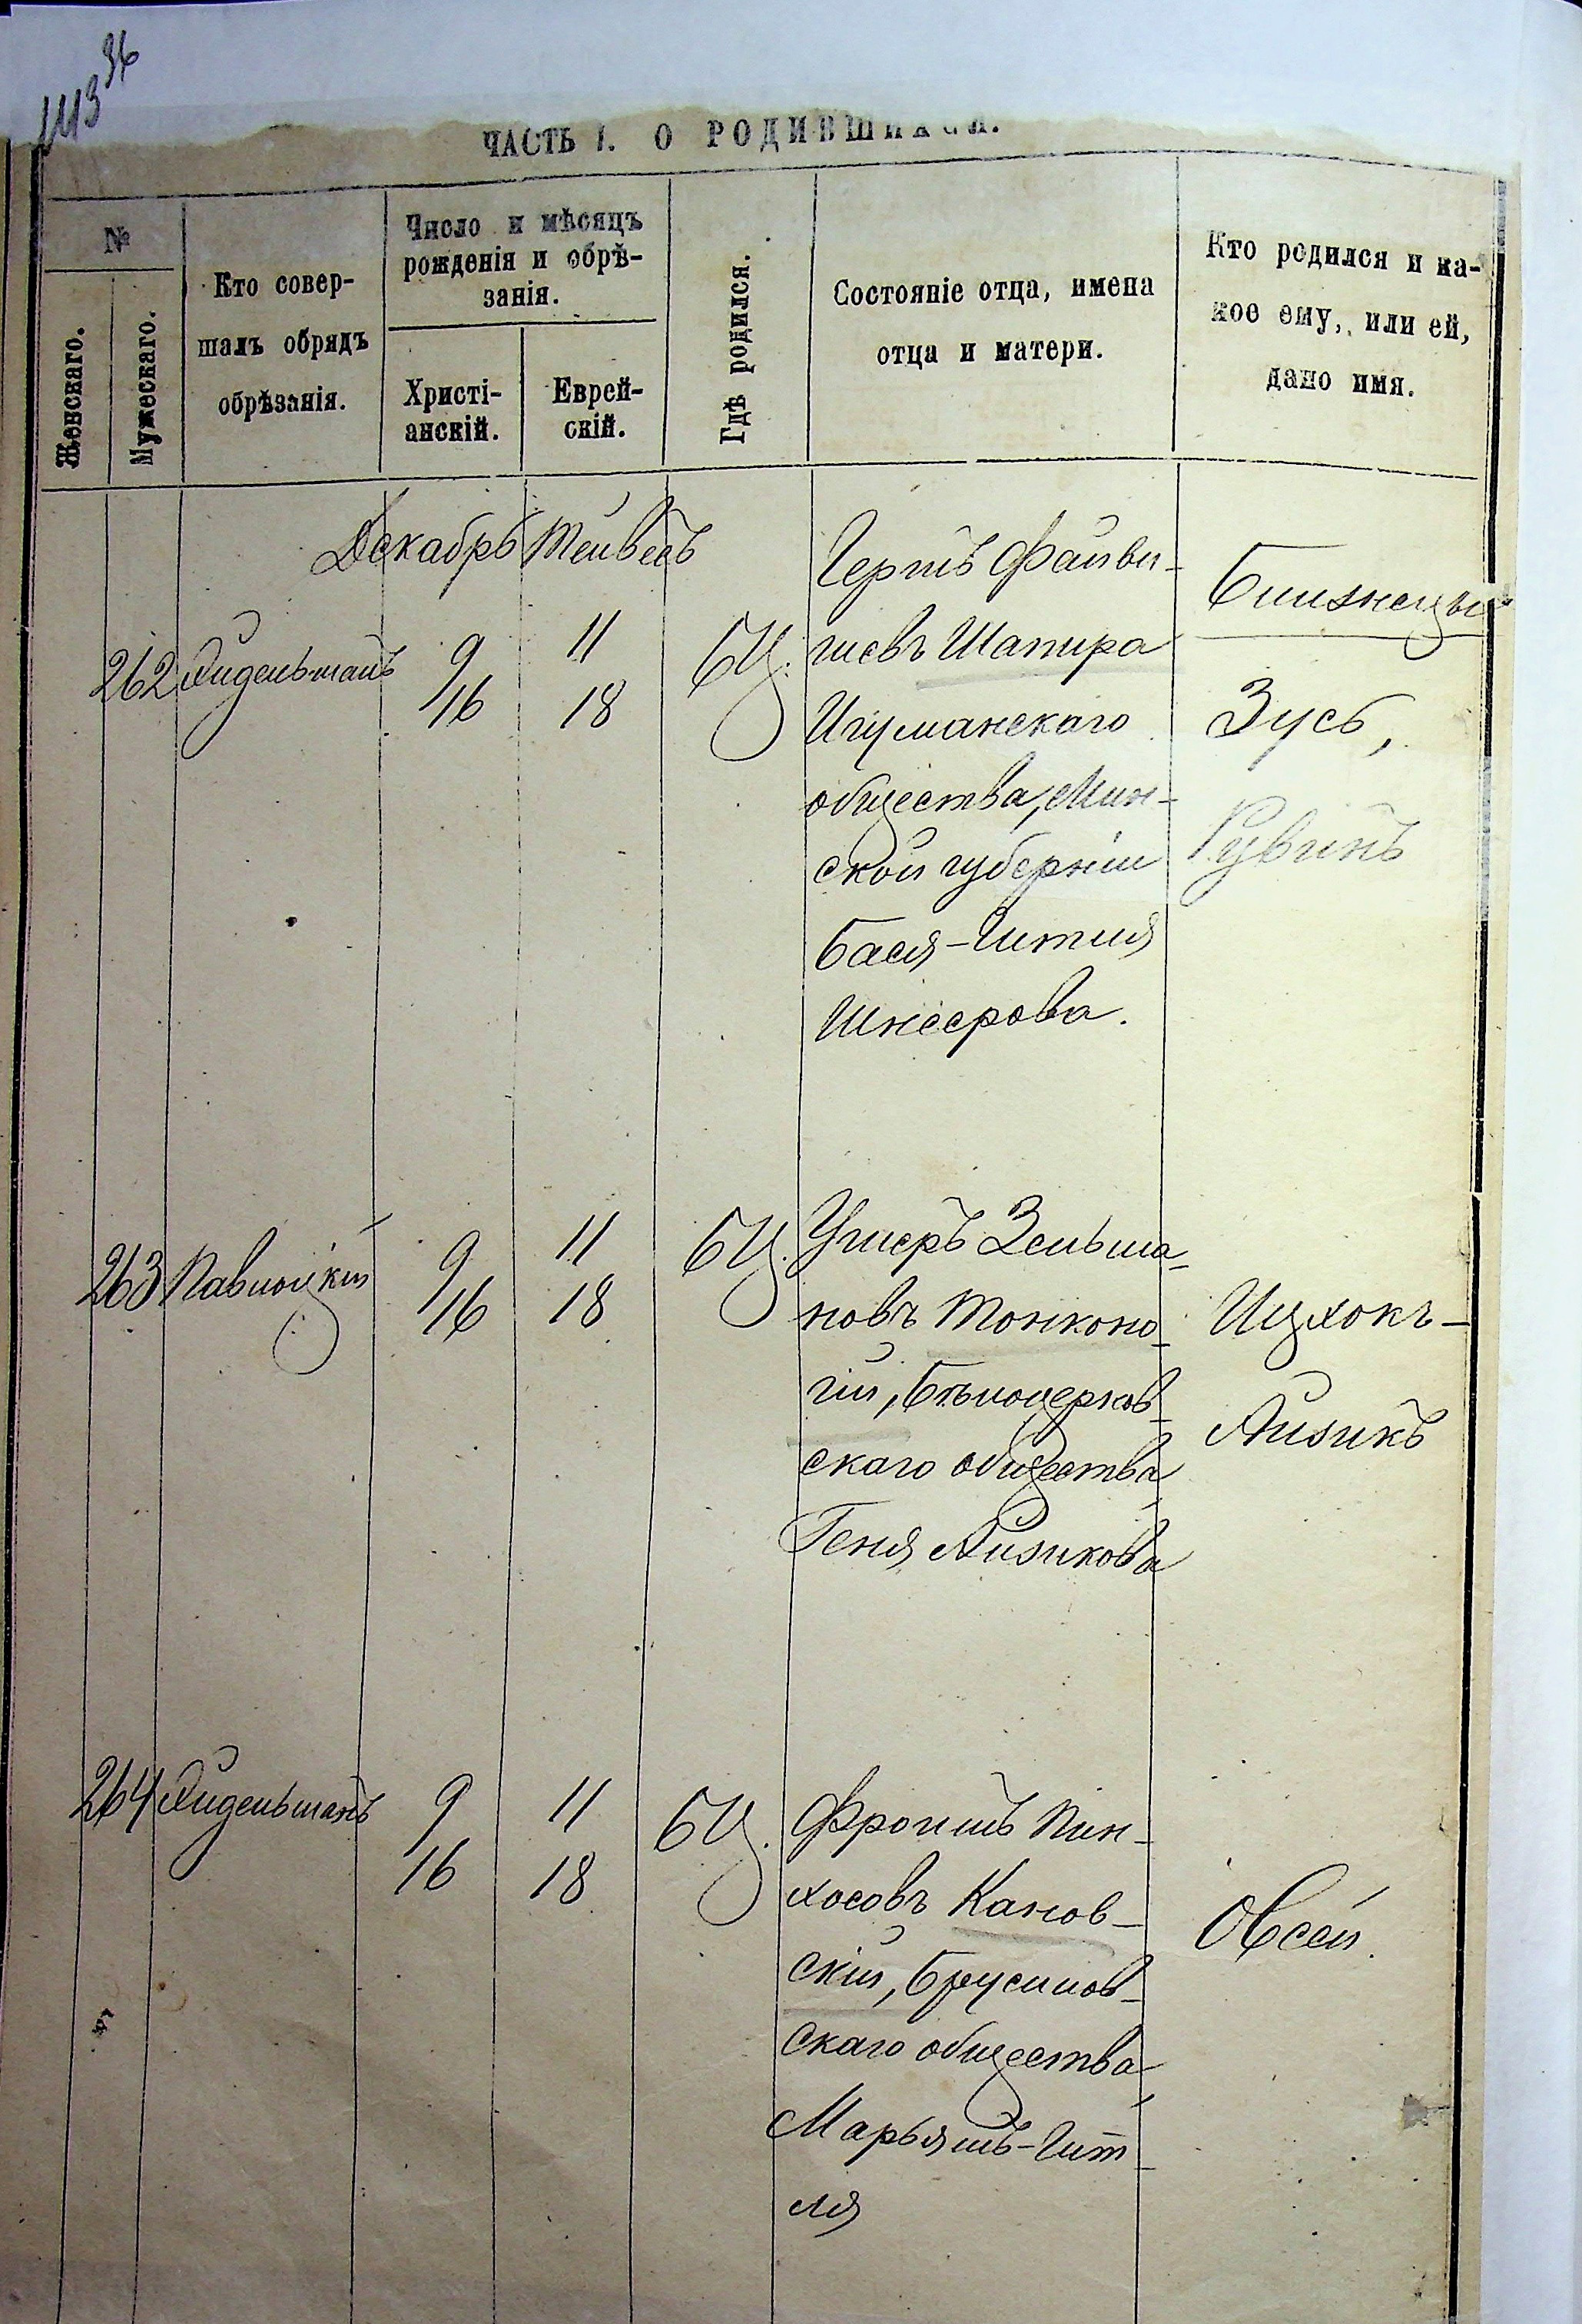 113 96
ЧАСТЬ I. О РОДИВШИХСЯ.
№
Женскаго.
Мужескаго.
Кто совер-
шалъ обрядъ
обрѣзанія.
Число и мѣсяцъ
рожденія и обрѣ-
занія.
Христі-
анскій.
Еврей-
скій.
Гдѣ родился.
Состояніе отца, имена
отца и матери.
Кто родился и ка-
кое ему, или ей,
дано имя.
Декабрь Тейвесъ
262 Айдельманъ
9
16
11
18
БЦ.
Гершъ Файви-
шевъ Шапира
Игуманскаго
общества, Мин-
ской губерніи
Бася-Гитля
Шнеерова.
Близнецы
Зусь,
Рувинъ
263 Павлоцкій
9
16
11
18
БЦ.
Ушеръ Зельма-
новъ Тонконо-
гій, Бѣлоцерков-
скаго общества
Геня Айзикова
Ицхокъ-
Айзикъ
264 Айдельманъ
9
16
11
18
БЦ.
Фроимъ Пин-
хосовъ Канов-
скій, Брусилов-
скаго общества
Марьямъ-Гит-
ля
Овсей.